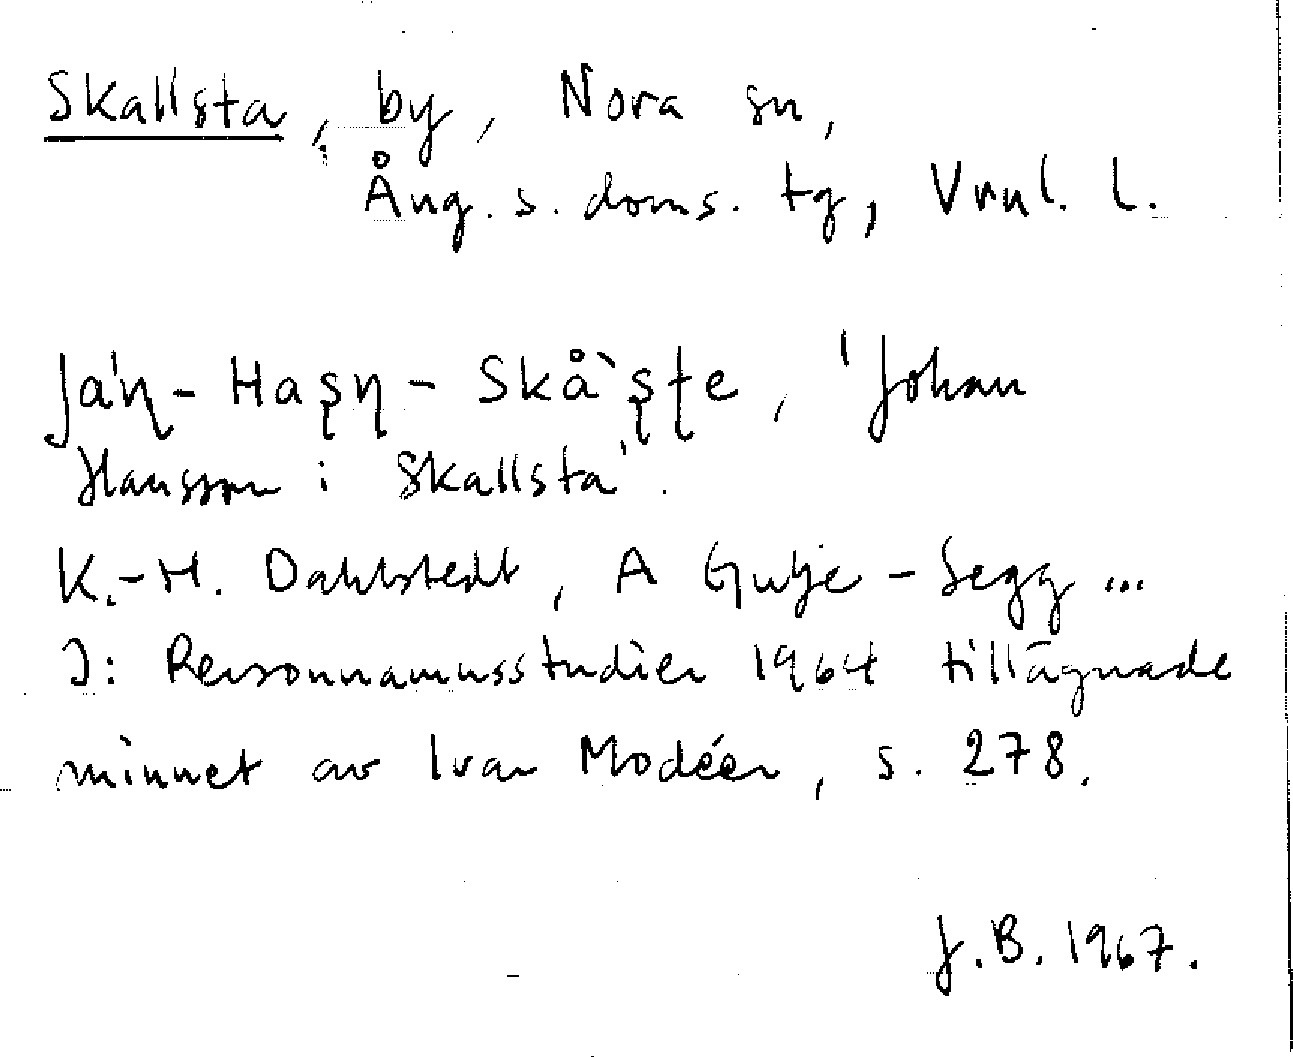 Skallsta, by, Nora sn,
Ång. s. doms. tg, Vrnl. l.
Ja'ɳ-Haʂɳ-Skå`ʂʈe, 'Johan
Hansson i Skallsta'.
K.-H. Dahlstedt, A Gulje-Segg ...
I: Personnamnsstudier 1964 tillägnade
minnet av Ivar Modéer, s. 278.
J.B. 1967.